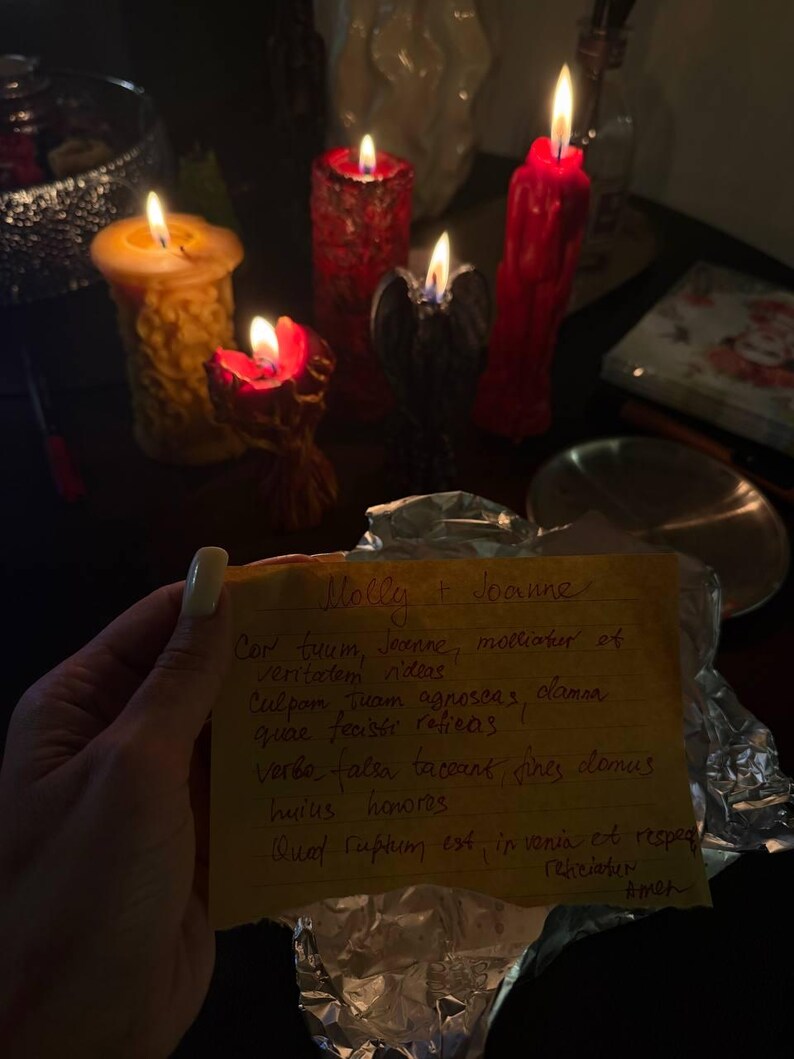 Molly + Joanne
Cor tuum, Joanne, molliatur et
veritatem videas
Culpam Tuam agnoscas, damna
quae fecisti reficias
verba falsa taceant, fines domus
huius honores
Quod ruptum est, in venia et respec
reficiatur
Amen